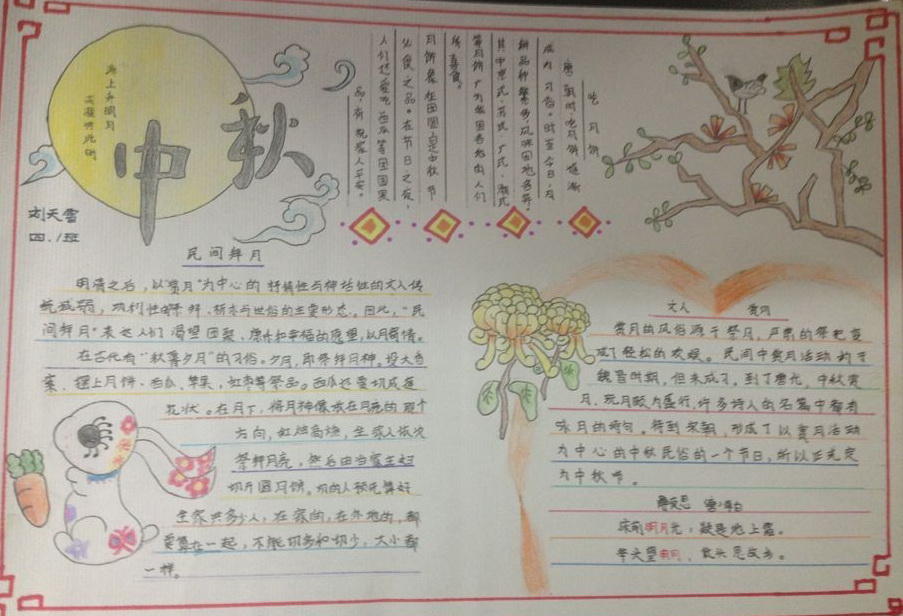 海上升明月
天涯共此时
中秋
刘天雪
四.1班
吃月饼
唐朝时吃月饼逐渐
成为习俗。时至今日，月
饼品种繁多，风味因地各异。
其中京式、苏式、广式、潮式
等月饼广为我国各地的人们
所喜食。
月饼象征团圆，是中秋节
必食之品。在节日之夜，
人们还爱吃西瓜等团圆果
品，有祝家人平安。
民间拜月
明清之后，以"赏月"为中心的抒情性与神话性的文人传
统减弱，功利性的祭拜、祈求与世俗的主要形态。因此，"民
间拜月"表达人们渴望团聚、康乐和幸福的愿望，以月寄情。
在古代有"秋暮夕月"的习俗。夕月，即祭拜月神。设大香
案，摆上月饼、西瓜、苹果、红枣等祭品。西瓜还要切成莲
花状。在月下，将月神像放在月亮的那个
方向，红烛高烧，全家人依次
祭拜月亮，然后由当家主妇
切开团圆月饼。切的人预先算好
全家共多少人，在家的，在外地的，都
要算在一起，不能切多和切少，大小都
一样。
文人赏月
赏月的风俗源于祭月，严肃的祭祀变
成了轻松的欢娱。民间中秋赏月活动约于
魏晋时期，但未成习。到了唐代，中秋赏
月、玩月颇为盛行，许多诗人的名篇中都有
咏月的诗句。待到宋朝，形成了以赏月活动
为中心的中秋民俗的一个节日，所以正式定
为中秋节。
静夜思 李白
床前明月光，疑是地上霜。
举头望明月，低头思故乡。